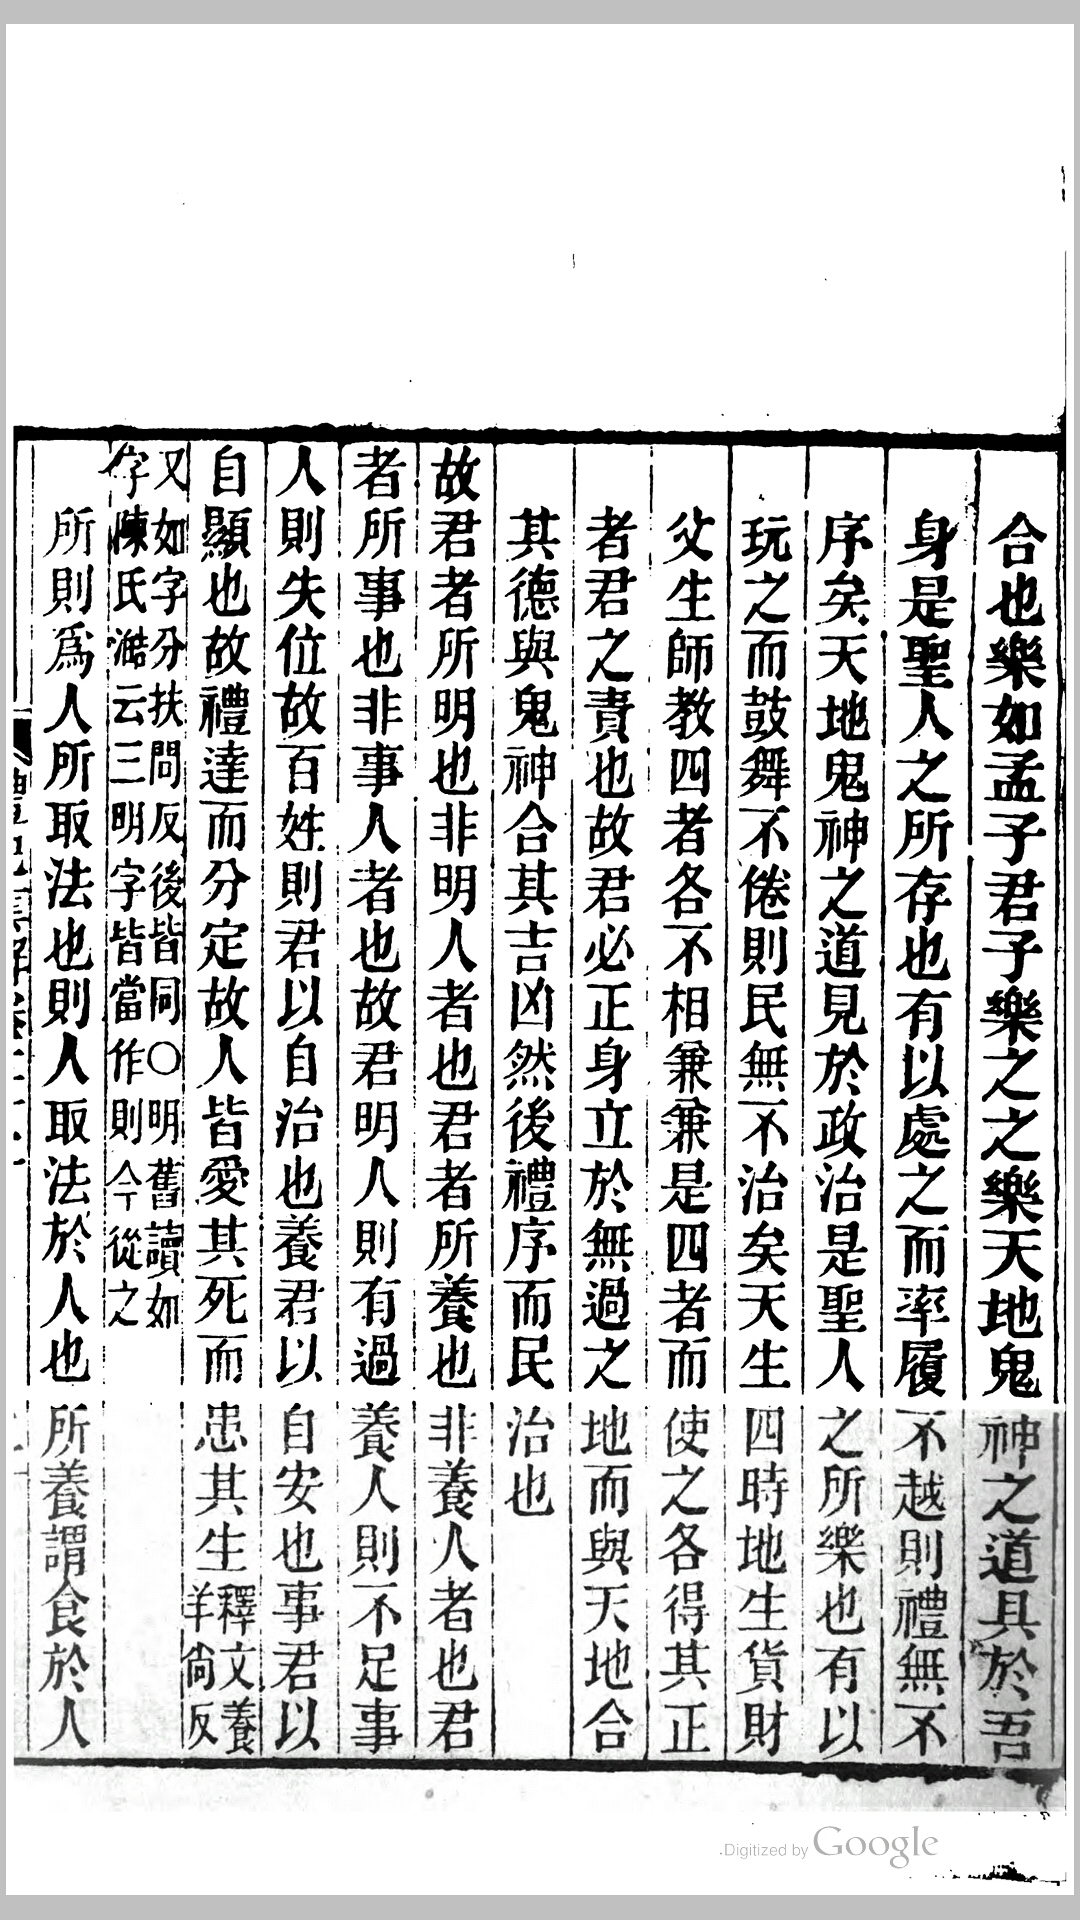 合也樂如孟子君子樂之之樂天地鬼神之道具於吾
身是聖人之所存也有以處之而率履不越則禮無不
序矣天地鬼神之道見於政治是聖人之所樂也有以
玩之而鼓舞不倦則民無不治矣天生四時地生貨財
父生師教四者各不相兼兼是四者而使之各得其正
者君之責也故君必正身立於無過之地而與天地合
其德與鬼神合其吉凶然後禮序而民治也
故君者所明也非明人者也君者所養也非養人者也君
者所事也非事人者也故君明人則有過養人則不足事
人則失位故百姓則君以自治也養君以自安也事君以
自顯也故禮達而分定故人皆愛其死而患其生釋文養羊尙反
又如字分扶問反後皆同○明舊讀如
字陳氏澔云三明字皆當作則今從之
所則爲人所取法也則人取法於人也所養謂食於人
禮記集解卷二十一
Digitized by Google